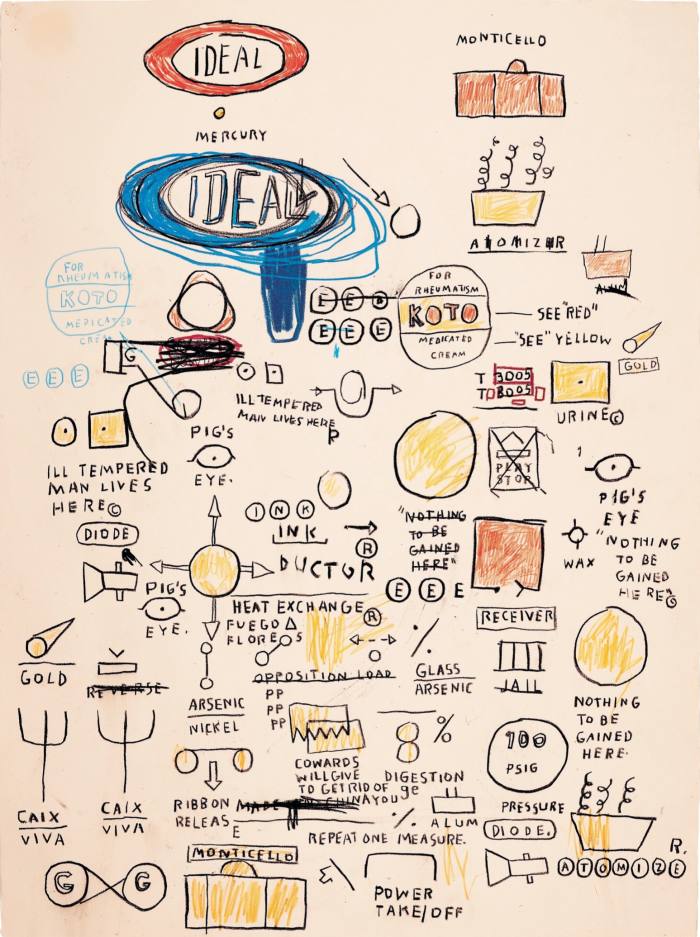 IDEAL
MONTICELLO
MERCURY
IDEAL
ATOMIZER
ALUM
FOR
RHEUMATISM
KOTO
MEDICATED
CREAM
E E E
E E E
FOR
RHEUMATISM
KOTO
MEDICATED
CREAM
SEE "RED"
"SEE" YELLOW
GOLD
G
E E E
ILL TEMPERED
MAN LIVES HERE
R
T 3005
T 8005
URINE©
PIG'S
EYE.
ILL TEMPERED
MAN LIVES
HERE©
PLAY
STOP
PIG'S
EYE
I N K
INK
"NOTHING
TO BE
GAINED
HERE"
DIODE
R
DUCTOR
WAX
"NOTHING
TO BE
GAINED
HERE"©
E E E
PIG'S
EYE.
HEAT EXCHANGE R
FUEGO
FLORES
RECEIVER
GOLD
REVERSE
OPPOSITION LOAD
GLASS
ARSENIC
JAIL
ARSENIC
NICKEL
PP
PP
PP
%
NOTHING
TO BE
GAINED
HERE.
100
PSIG
PRESSURE
CAIX
VIVA
CAIX
VIVA
RIBBON
RELEASE
COWARDS
WILL GIVE
TO GET RID OF
YOU
MADE IN CHINA
DIGESTION
ge
ALUM
REPEAT ONE MEASURE.
DIODE.
R.
ATOMIZE
G G
MONTICELLO
POWER
TAKE/OFF